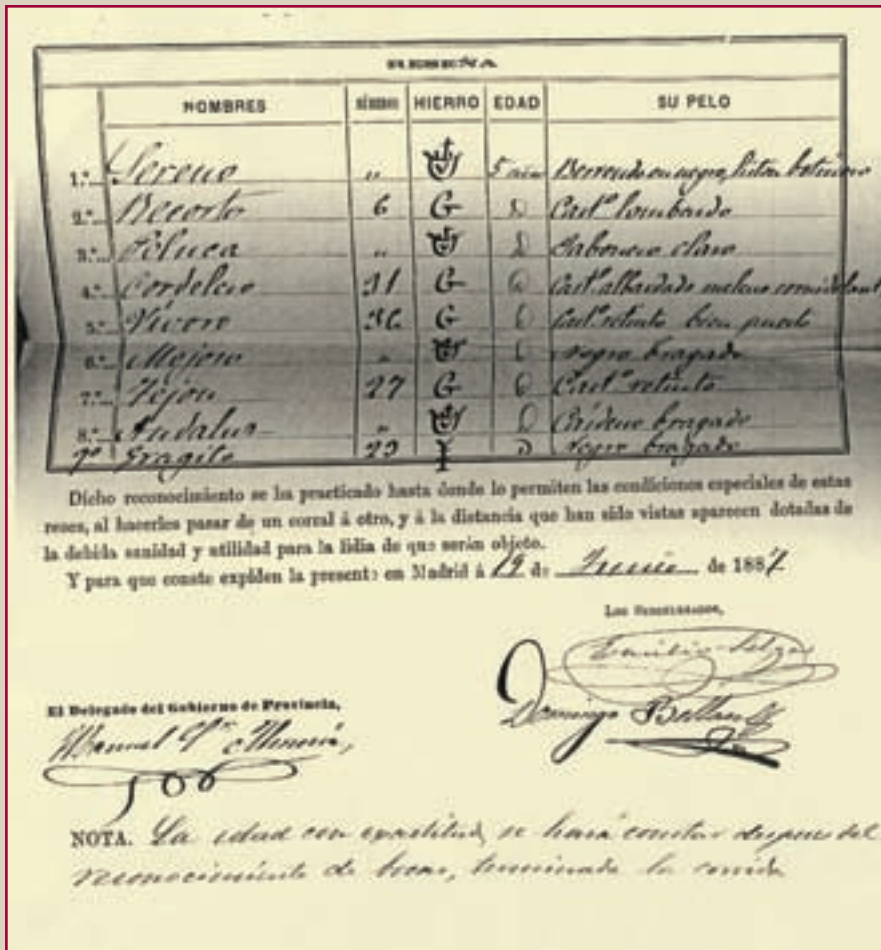 RESEÑA
NOMBRES NÚMERO HIERRO EDAD SU PELO
1.º Sereno " 5 años Berrendo en negro, botinero
2.º Recorto 6 G D Cast.º lombardo
3.º " D Jabonero claro
4.º Cordelero 31 G D Cast.º albardado meleno
5.º Vívoro 36 G D Cast.º retinto bien puesto
6.º Mejoro " D Negro bragado
7.º Tejon 27 G D Cast.º retinto
8.º Andaluz " D Cárdeno bragado
9º Fragilo 23 D Negro bragado
Dicho reconocimiento se ha practicado hasta donde lo permiten las condiciones especiales de estas
reses, al hacerlos pasar de un corral á otro, y á la distancia que han sido vistas aparecen dotadas de
la debida sanidad y utilidad para la lidia de que serán objeto.
Y para que conste expiden la presente en Madrid á 19 de Junio de 1887
Emilio
El Delegado del Gobierno de Provincia,
Domingo
Manuel
NOTA. La edad con exactitud, se hará constar despues del
reconocimiento de bocas, terminada la corrida